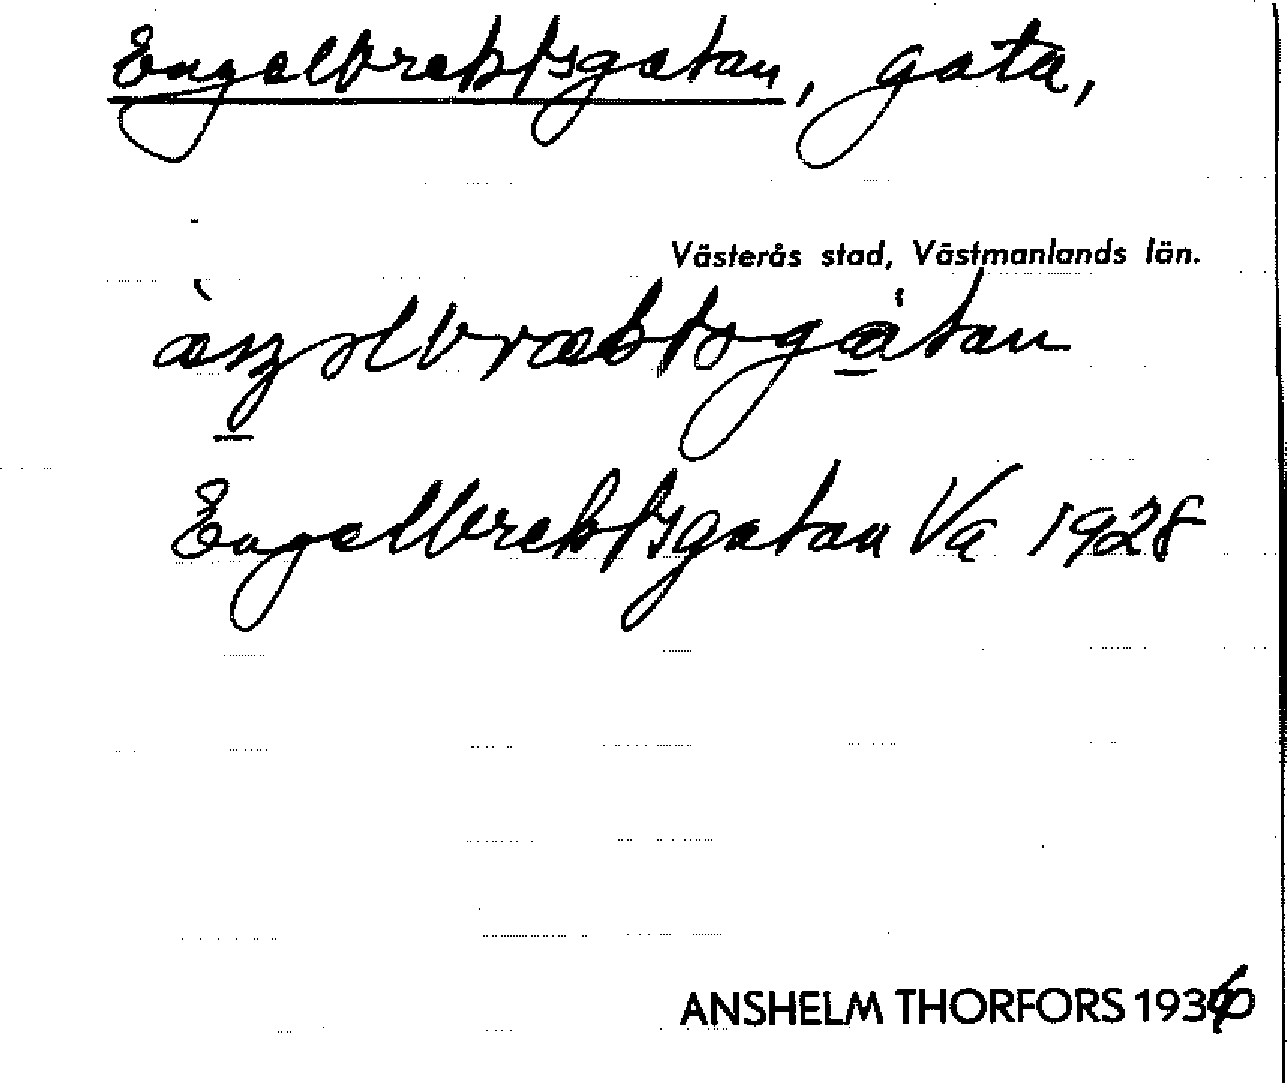 Engelbrektsgatan, gata,
Västerås stad, Västmanlands län.
Engelbrektsgatan Va 1928
ANSHELM THORFORS 1936